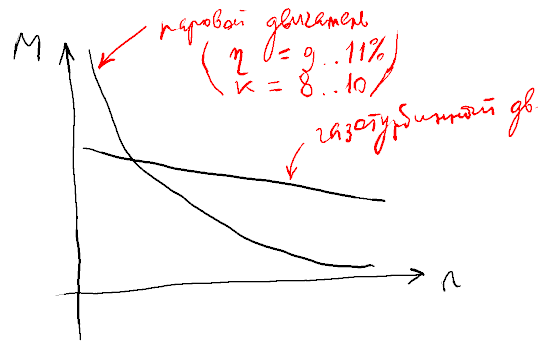 паровой двигатель
M
(η = 9..11%)
(к = 8..10)
газотурбинный дв.
n